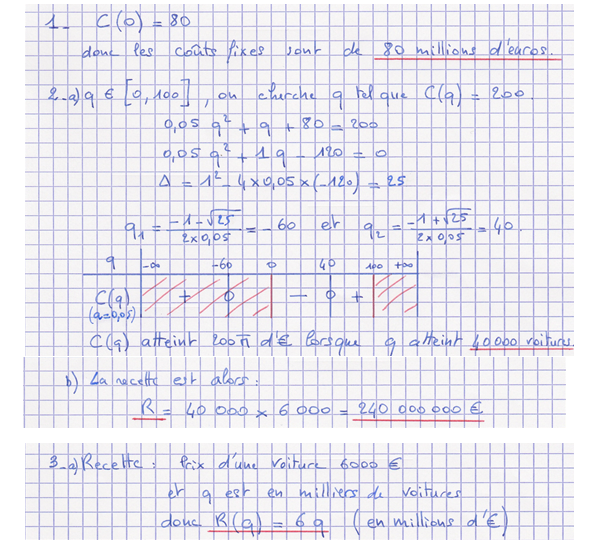 1- C(0) = 80
donc les coûts fixes sont de 80 millions d'euros.
2-a) q ∈ [0,100], on cherche q tel que C(q) = 200.
0,05 q² + q + 80 = 200
0,05 q² + 1q - 120 = 0
Δ = 1² - 4×0,05×(-120) = 25
q₁ = (-1-√25)/(2×0,05) = -60 et q₂ = (-1+√25)/(2×0,05) = 40.
q -∞ -60 0 40 100 +∞
C(q) + 0 - 0 +
(a=0,05)
C(q) atteint 200 m d'€ lorsque q atteint 40000 voitures.
b) La recette est alors :
R = 40 000 × 6 000 = 240 000 000 €
3-a) Recette : Prix d'une voiture 6000 €
et q est en milliers de voitures
donc R(q) = 6q (en millions d'€)